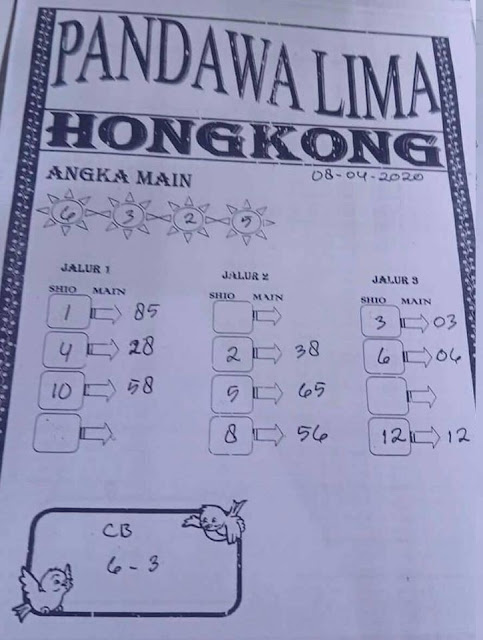 PANDAWA LIMA
HONGKONG
ANGKA MAIN
08-04-2020
6 3 2 5
JALUR 1
SHIO MAIN
1 85
4 28
10 58
JALUR 2
SHIO MAIN
2 38
5 65
8 56
JALUR 3
SHIO MAIN
3 03
6 06
12 12
CB
6 - 3